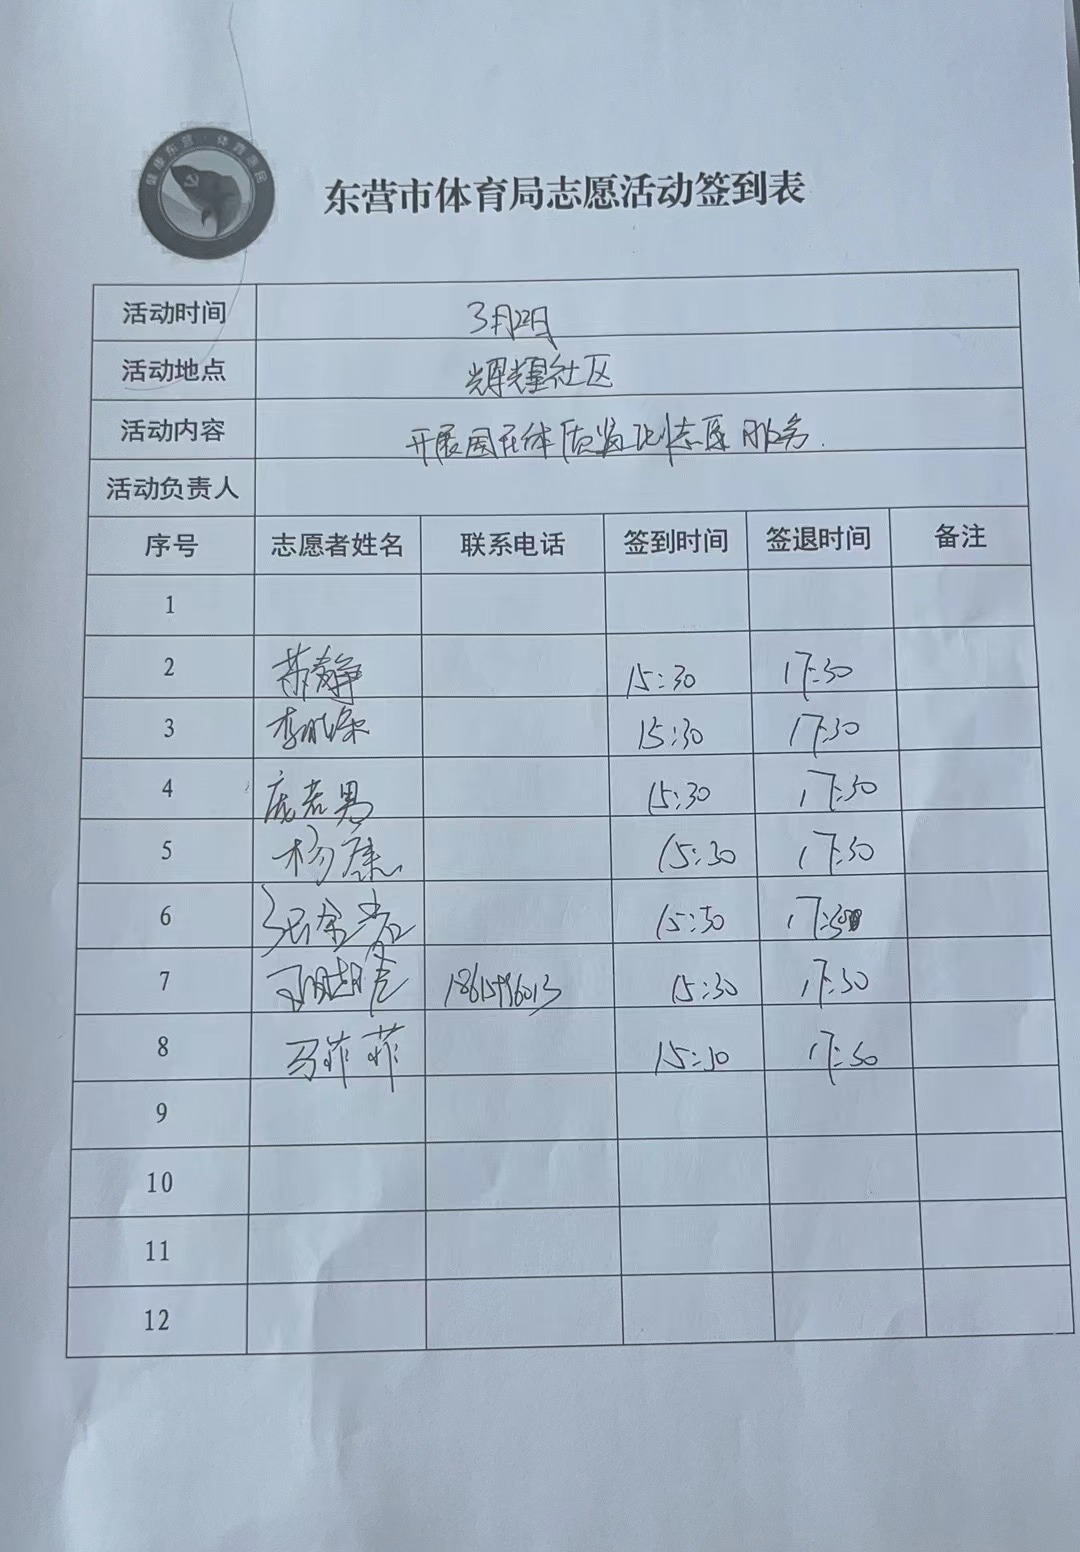 健康东营·体育惠民
东营市体育局志愿活动签到表
活动时间 3月22日
活动地点 辉煌社区
活动内容 开展国民体质监测志愿服务.
活动负责人
序号 志愿者姓名 联系电话 签到时间 签退时间 备注
1
2 静 15:30 17:30
3 李 15:30 17:30
4 庞若男 15:30 17:30
5 杨康 15:30 17:30
6 张 15:30 17:30
7 15:30 17:30
8 马菲菲 15:30 17:30
9
10
11
12